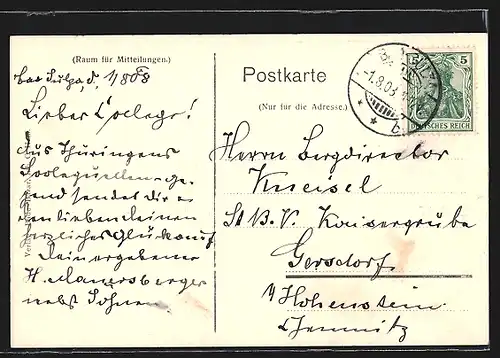 (Raum für Mitteilungen.)
Bad Sulza, d. 1/8 08
Lieber College!
Aus Thüringens
Soolequellen-Ge-
gend sendet dir
lieben deinen
herzliches Glückauf
Dein ergebener
H. Manersberger
nebst Sohn
Postkarte
(Nur für die Adresse.)
-1.8.08
* * b
5 5
DEUTSCHES REICH
Herrn Bergdirector
Kneisel
St B. V. Kaisergrube
Gersdorf
b/ Hohenstein
Chemnitz